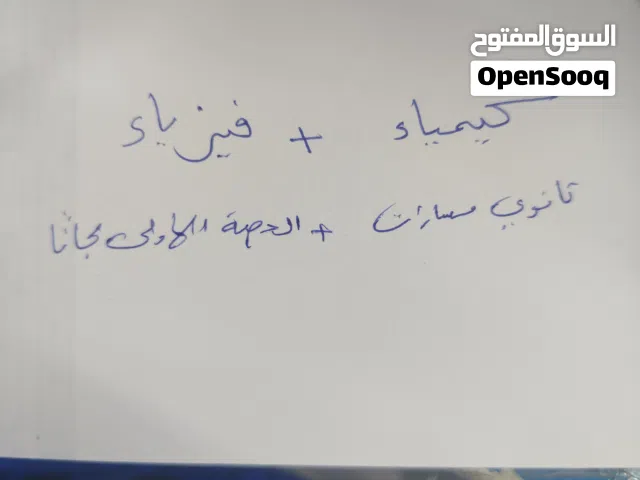 السوق المفتوح
OpenSooq
كيمياء + فيزياء
ثانوي مسارات + الحصة الاولى مجانا